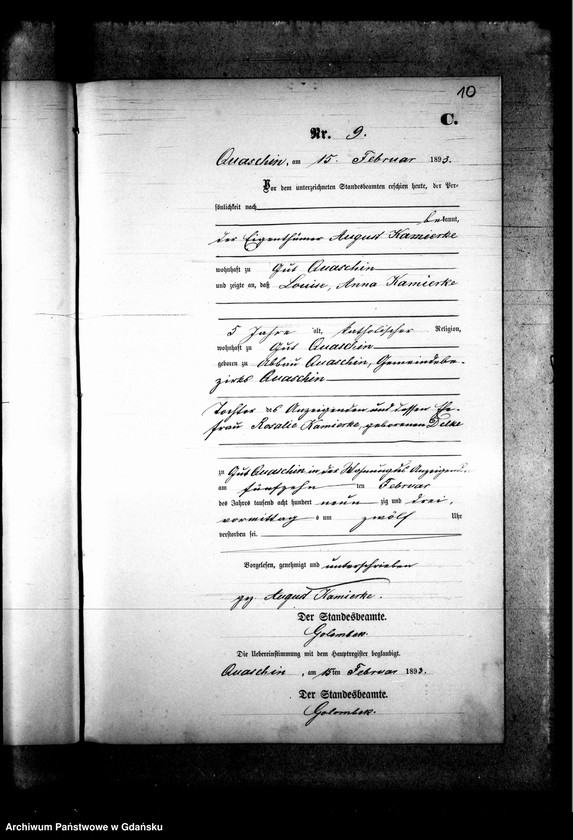 10
C.
Nr. 9.
Quaschin, am 15. Februar 1893.
Vor dem unterzeichneten Standesbeamten erschien heute, der Per-
sönlichkeit nach
bekannt,
der Eigenthümer August Kamierke
wohnhaft zu Gut Quaschin
und zeigte an, daß Louise, Anna Kamierke
5 Jahre alt, katholischer Religion,
wohnhaft zu Gut Quaschin
geboren zu Abbau Quaschin, Gemeindebe-
zirks Quaschin
Tochter des Anzeigenden und dessen Ehe-
frau Rosalie Kamierke, geborenen Delke
zu Gut Quaschin in der Wohnung des Anzeigenden
am fünfzehn ten Februar
des Jahres tausend acht hundert neun zig und drei,
vormittag s um zwölf Uhr
verstorben sei.
Vorgelesen, genehmigt und unterschrieben
gez. August Kamierke.
Der Standesbeamte.
Golombek.
Die Uebereinstimmung mit dem Hauptregister beglaubigt.
Quaschin, am 15ten Februar 1893.
Der Standesbeamte.
Golombek.
Archiwum Państwowe w Gdańsku